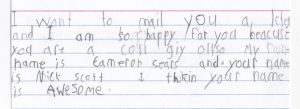 I want to mail you a letter
and I am so happy for you because
you are a coll giy allso My
name is Cameron sears and your name
is Nick scott I thikin your name
is AWesome.